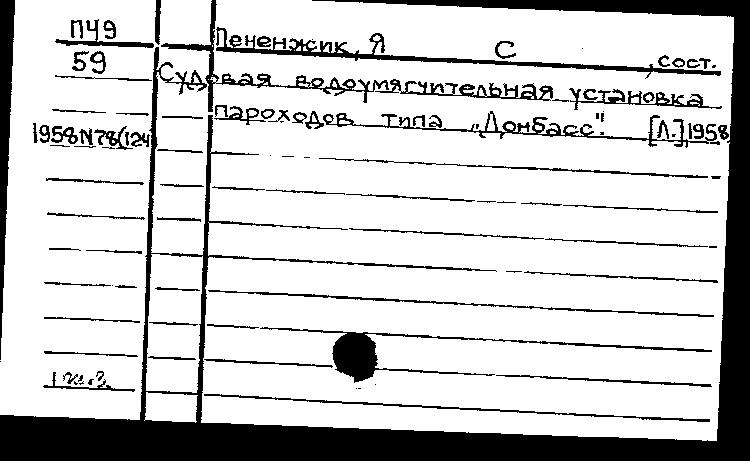 П49
Пененжик, Я С , сост.
59
Судовая водоумягчительная установка
пароходов типа „Донбасс". [Л.], 1958
1958 N78(124)